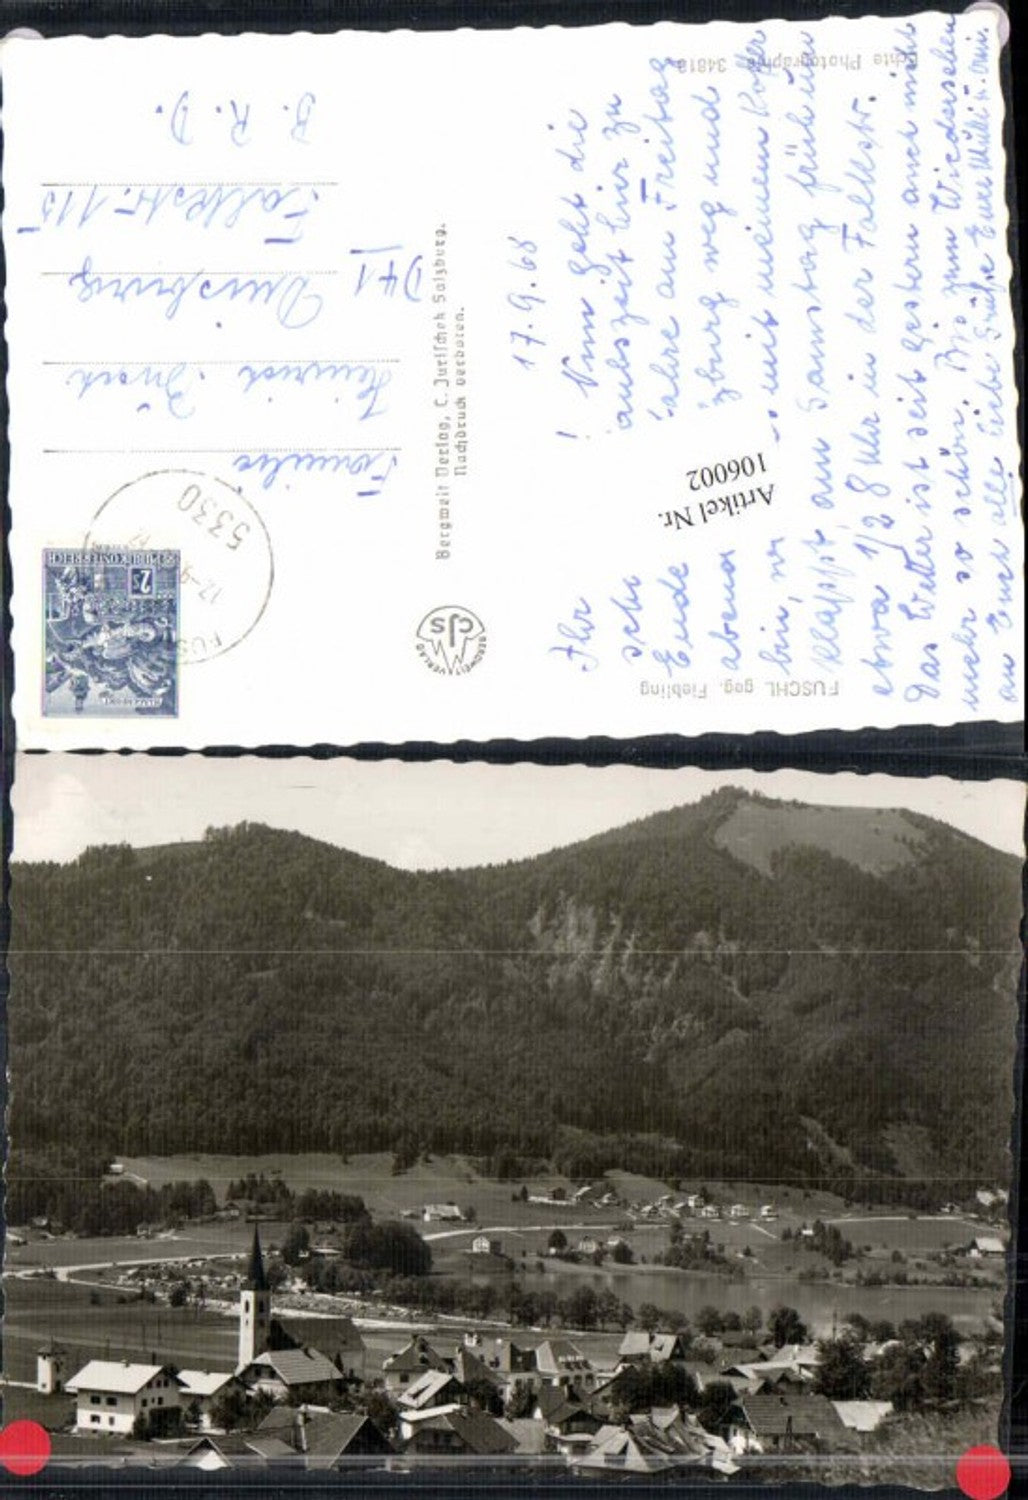 FUSCHL geg. Fiebling
Echte Photographie 34818
17.9.68
Ihr
! Nun geht die
aubszeit hier zu
Ende
ahre am Freitag
abend
zburg weg und
bin,
mit meinem Koffer
klappt, am Samstag früh um
etwa 1/2 8 Uhr in der Falkstr.
Das Wetter ist seit gestern auch nicht
mehr so schön. Bis zum Wiedersehen
an Euch alle liebe Grüße Eure
Artikel Nr.
106002
BERGWELT VERLAG
CJS
Bergwelt Verlag, C. Jurischek Salzburg.
Nachdruck verboten.
REPUBLIK ÖSTERREICH
2
5330
17.-9.
FUS
Familie
Heinrich
D 41 Duisburg
Falkstr. 115
B. R. D.